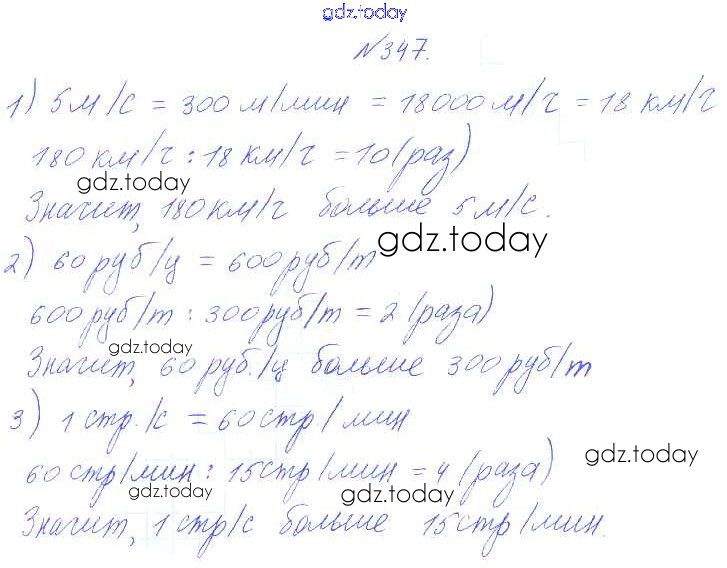 gdz.today
№347.
1) 5 м/с = 300 м/мин = 18000 м/ч = 18 км/ч
180 км/ч : 18 км/ч = 10 (раз)
gdz.today
Значит, 180 км/ч больше 5 м/с.
gdz.today
2) 60 руб/ц = 600 руб/т
600 руб/т : 300 руб/т = 2 (раза)
gdz.today
Значит, 60 руб./ц больше 300 руб/т
3) 1 стр./с = 60 стр/мин
gdz.today
60 стр/мин : 15 стр/мин = 4 (раза)
gdz.today
gdz.today
Значит, 1 стр/с больше 15 стр/мин.